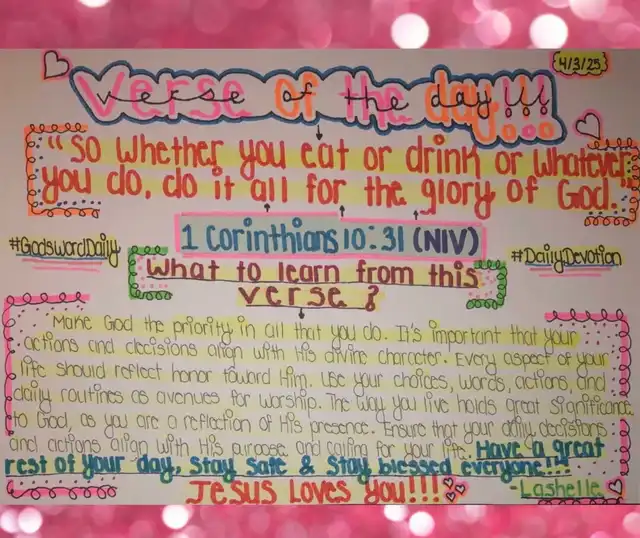 4/3/25
Verse of the day!!!
"So whether you eat or drink or whatever
you do, do it all for the glory of God."
1 Corinthians 10:31 (NIV)
#GodswordDaily
#DailyDevotion
What to learn from this
verse?
Make God the priority in all that you do. It's important that your
actions and decisions align with His divine character. Every aspect of your
life should reflect honor toward Him. Use your choices, words, actions, and
daily routines as avenues for worship. The way you live holds great significance
to God, as you are a reflection of His presence. Ensure that your daily decisions
and actions align with His purpose and calling for your life. Have a great
rest of your day, Stay Safe & Stay blessed everyone!!!
Jesus Loves You!!!
-Lashelle